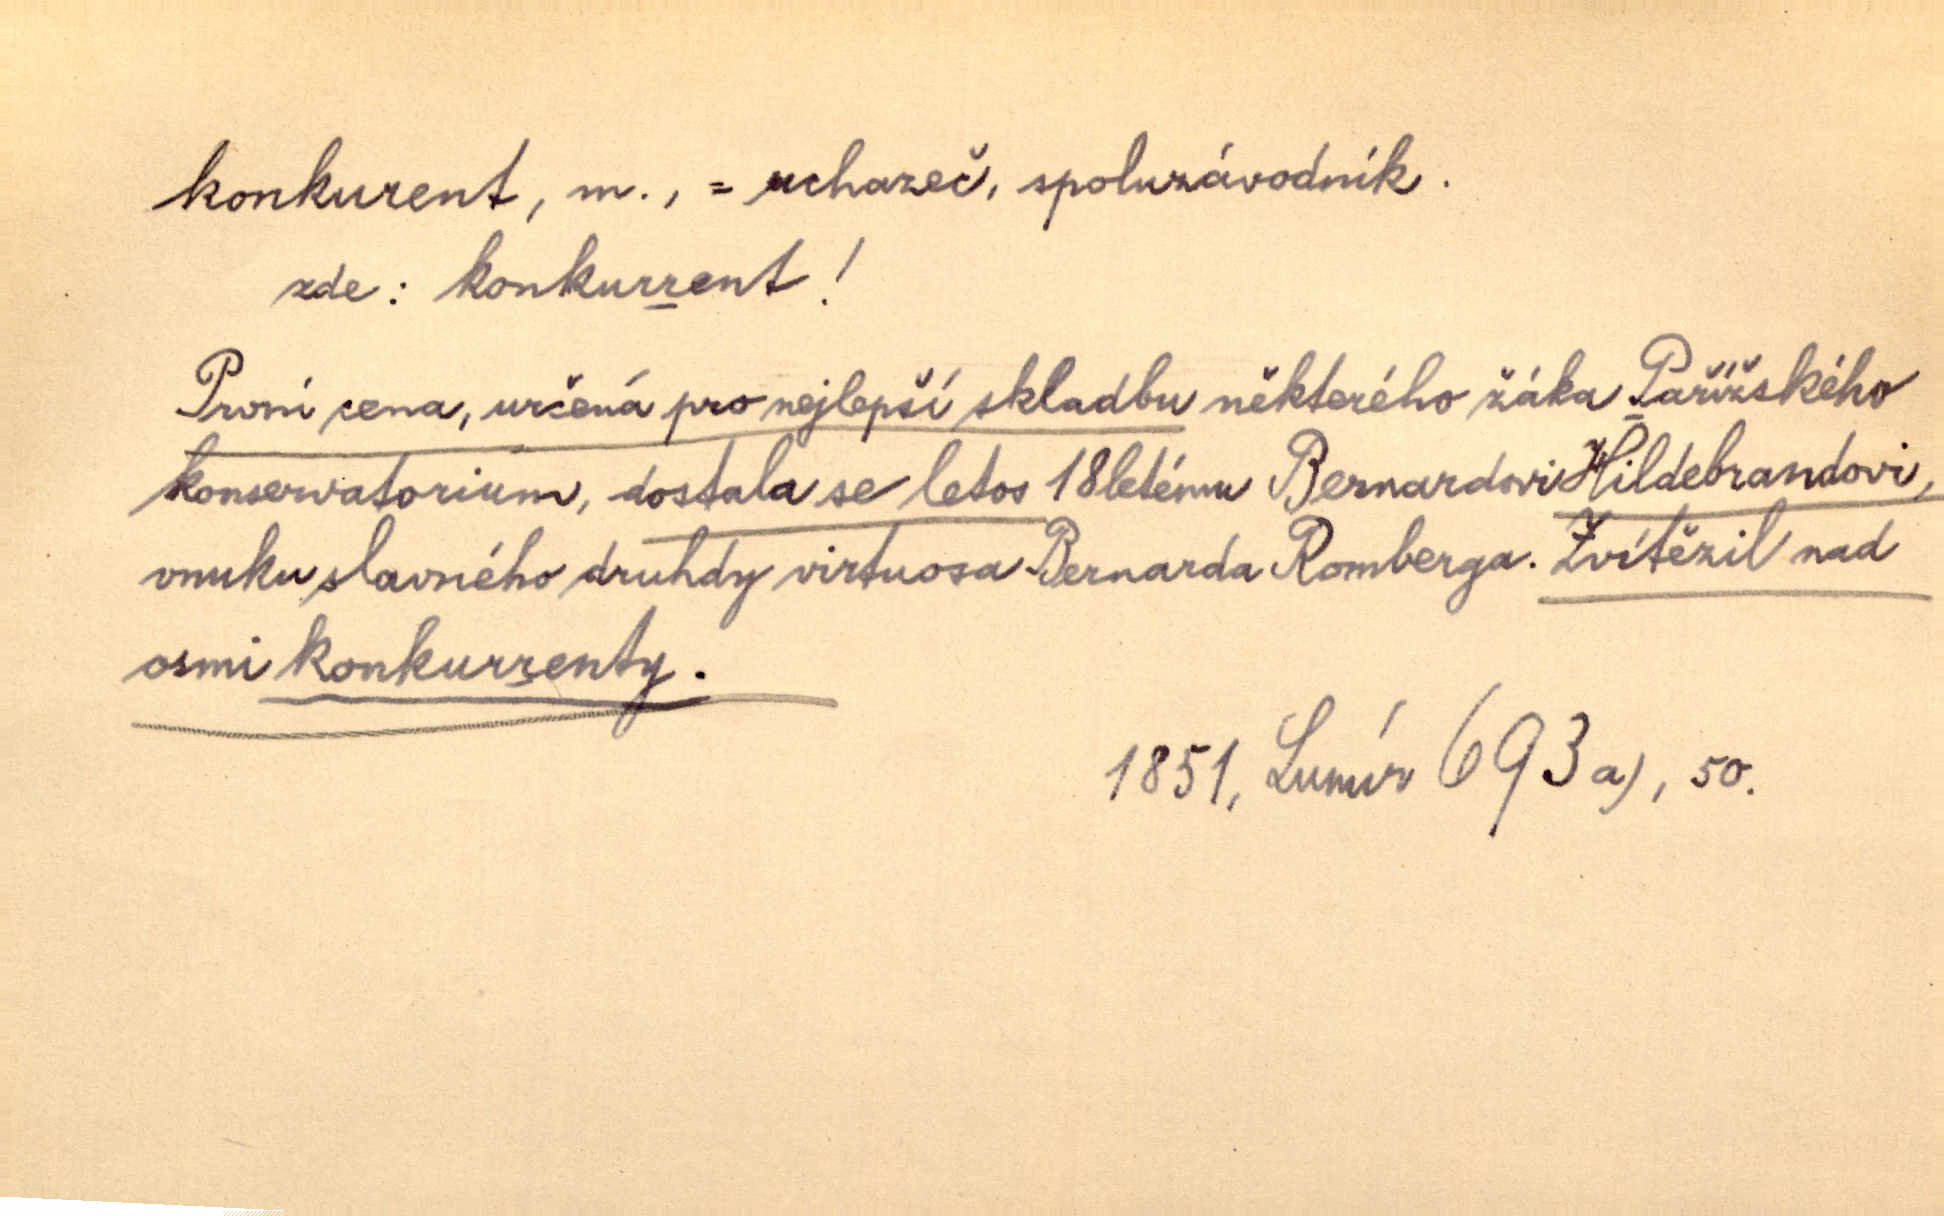 konkurent, m., = uchazeč, spoluzávodník.
zde: konkurrent!
První cena, určená pro nejlepší skladbu některého žáka Pařížského
konservatorium, dostala se letos 18letému Bernardovi Hildebrandovi,
vnuku slavného druhdy virtuosa Bernarda Romberga. Zvítězil nad
osmi konkurrenty.
1851, Lumír 693a), 50.